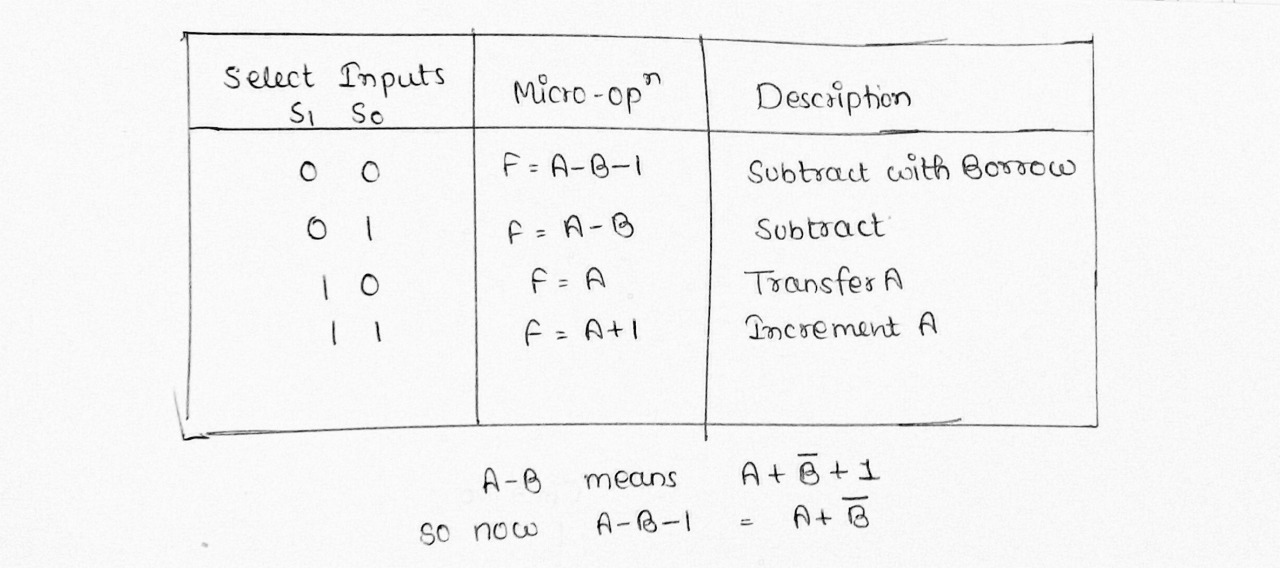 Select Inputs Micro-opⁿ Description
S1 S0
0 0 F = A-B-1 Subtract with Borrow
0 1 F = A-B Subtract
1 0 F = A Transfer A
1 1 F = A+1 Increment A
A-B means A + B̅ + 1
so now A-B-1 = A + B̅